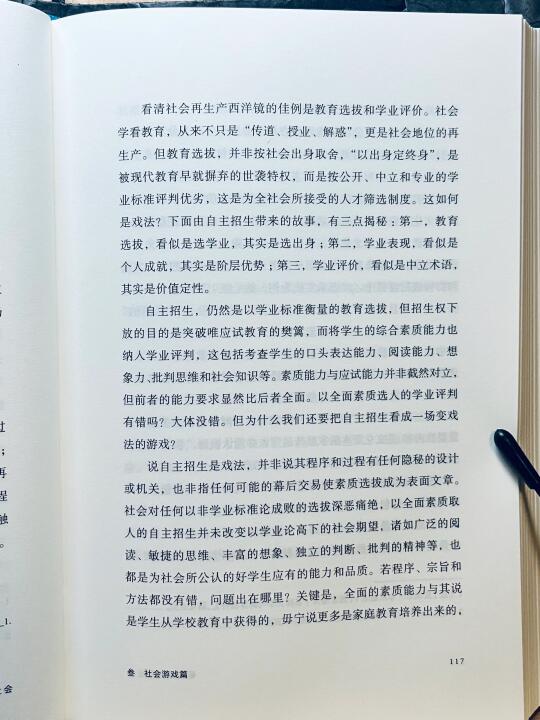 看清社会再生产西洋镜的佳例是教育选拔和学业评价。社会
学看教育，从来不只是“传道、授业、解惑”，更是社会地位的再
生产。但教育选拔，并非按社会出身取舍，“以出身定终身”，是
被现代教育早就摒弃的世袭特权，而是按公开、中立和专业的学
业标准评判优劣，这是为全社会所接受的人才筛选制度。这如何
是戏法？下面由自主招生带来的故事，有三点揭秘：第一，教育
选拔，看似是选学业，其实是选出身；第二，学业表现，看似是
个人成就，其实是阶层优势；第三，学业评价，看似是中立术语，
其实是价值定性。
自主招生，仍然是以学业标准衡量的教育选拔，但招生权下
放的目的是突破唯应试教育的樊篱，而将学生的综合素质能力也
纳入学业评判，这包括考查学生的口头表达能力、阅读能力、想
象力、批判思维和社会知识等。素质能力与应试能力并非截然对立，
但前者的能力要求显然比后者全面。以全面素质选人的学业评判
有错吗？大体没错。但为什么我们还要把自主招生看成一场变戏
法的游戏？
说自主招生是戏法，并非说其程序和过程有任何隐秘的设计
或机关，也非指任何可能的幕后交易使素质选拔成为表面文章。
社会对任何以非学业标准论成败的选拔深恶痛绝，以全面素质取
人的自主招生并未改变以学业论高下的社会期望，诸如广泛的阅
读、敏捷的思维、丰富的想象、独立的判断、批判的精神等，也
都是为社会所公认的好学生应有的能力和品质。若程序、宗旨和
方法都没有错，问题出在哪里？关键是，全面的素质能力与其说
是学生从学校教育中获得的，毋宁说更多是家庭教育培养出来的，
叁 社会游戏篇
117
过
；
再
程
触
。
1.
会